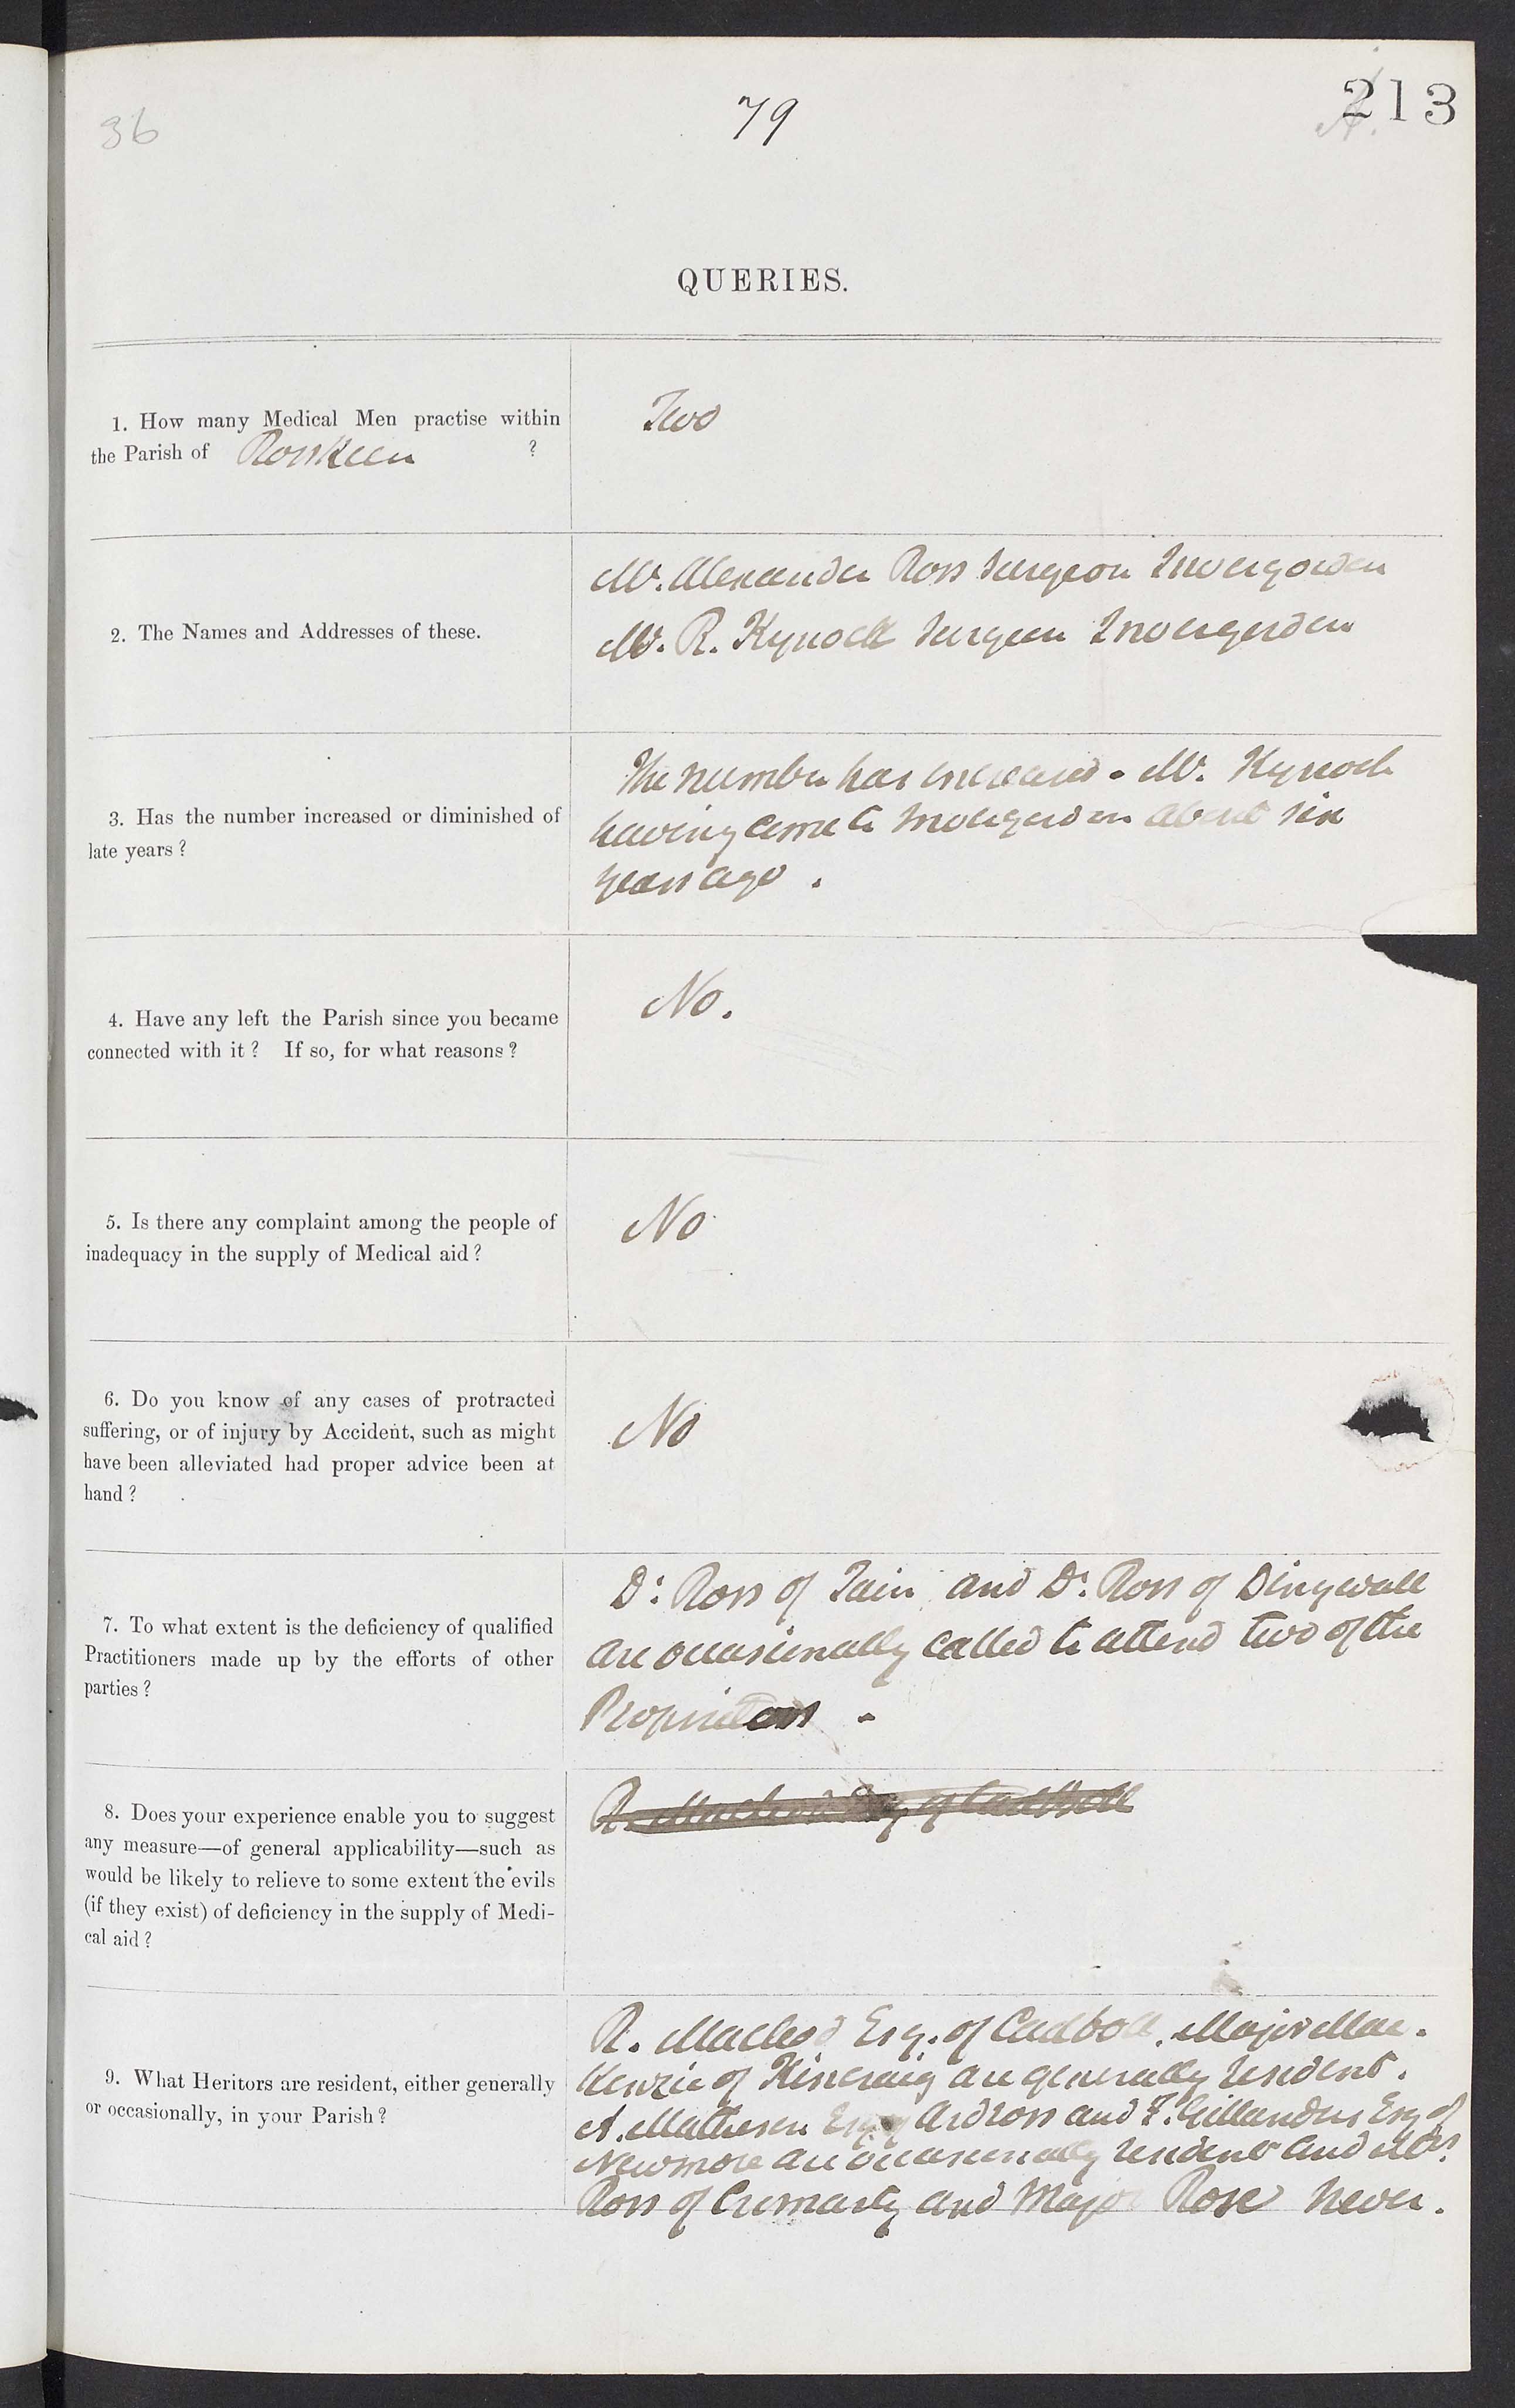 36
79
213
QUERIES.
1. How many Medical Men practise within
the Parish of Rosskeen ?
Two
2. The Names and Addresses of these.
Mr. Alexander Ross Surgeon Invergordon
Mr. R. Kynoch Surgeon Invergordon
3. Has the number increased or diminished of
late years ?
The number has increased - Mr. Kynoch
having come to Invergordon about six
years ago.
4. Have any left the Parish since you became
connected with it ? If so, for what reasons ?
No.
5. Is there any complaint among the people of
inadequacy in the supply of Medical aid ?
No
6. Do you know of any cases of protracted
suffering, or of injury by Accident, such as might
have been alleviated had proper advice been at
hand ?
No
7. To what extent is the deficiency of qualified
Practitioners made up by the efforts of other
parties ?
Dr. Ross of Tain and Dr. Ross of Dingwall
are occasionally called to attend two of the
Proprietors -
8. Does your experience enable you to suggest
any measure—of general applicability—such as
would be likely to relieve to some extent the evils
(if they exist) of deficiency in the supply of Medi-
cal aid ?
R. Macleod Esq. of Cadboll
9. What Heritors are resident, either generally
or occasionally, in your Parish ?
R. Macleod Esq. of Cadboll, Major Mac-
kenzie of Kincraig are generally resident.
A. Matheson Esq of Ardross and F. Gillanders Esq of
Newmore are occasionally resident and Mrs.
Ross of Cromarty and Major Rose never.